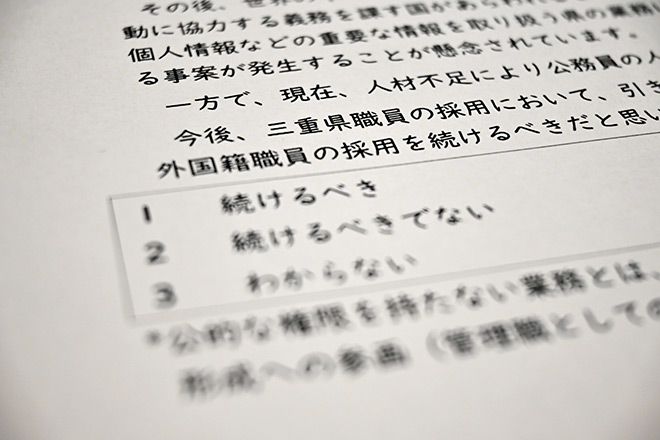 その後、世界の
動に協力する義務を課す国があらわれる
個人情報などの重要な情報を取り扱う県の業務
る事案が発生することが懸念されています。
一方で、現在、人材不足により公務員の人
今後、三重県職員の採用において、引き
外国籍職員の採用を続けるべきだと思い
1 続けるべき
2 続けるべきでない
3 わからない
*公的な権限を持たない業務とは、
形成への参画（管理職としての